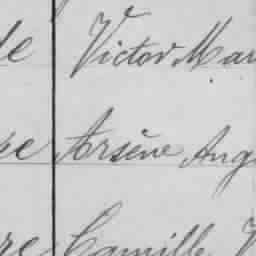 de Victor Mar
re Arsène Ang
re Camille V